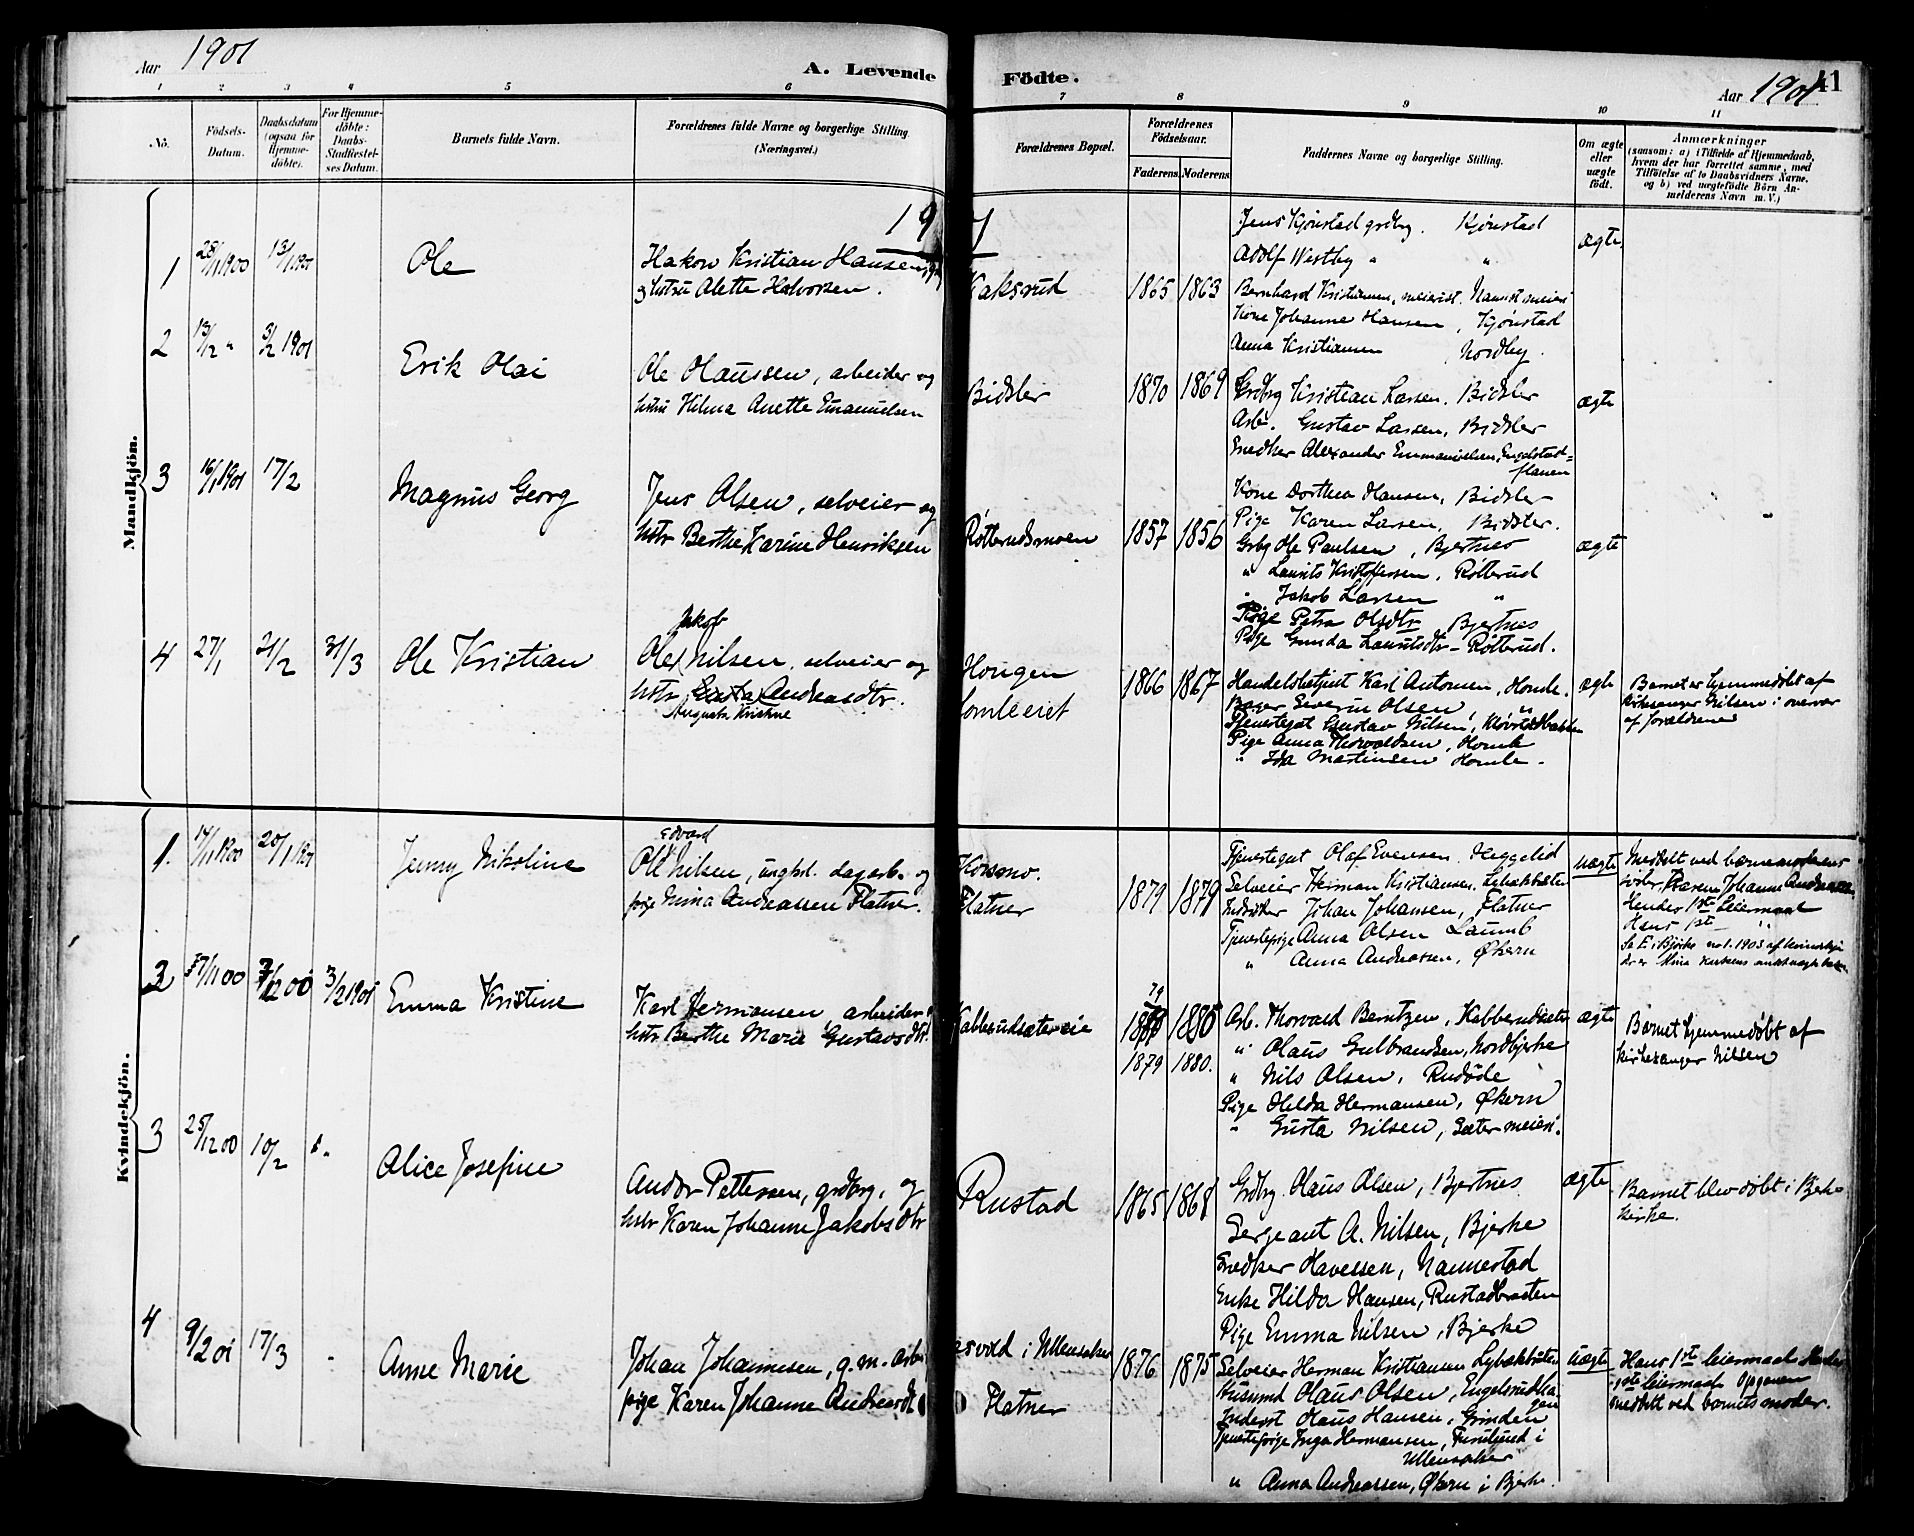 Aar 1901
A. Levende
Födte.
Aar 1901
41
1 2 3 4 5 6 7 8 9 10 11
No.
Födsels-
Datum.
Daabsdatum
(ogsaa för
Hjemme-
döbte).
For Hjemme-
döbte:
Daabs-
Stadfæstel-
ses Datum.
Barnets fulde Navn.
Forældrenes fulde Navne og borgerlige Stilling
(Næringsvei.)
Forældrenes Bopæl.
Forældrenes
Födselsaar.
Faderens. Moderens.
Faddernes Navne og borgerlige Stilling.
Om ægte
eller
uægte
födt.
Anmærkninger
(saasom: a) i Tilfælde af Hjemmedaab,
hvem der har forrettet samme, med
Tilföielse af to Daabsvidners Navne,
og b) ved uægtefödte Börn An-
melderens Navn m. V.)
Mandkjön.
1 28/11 1900 13/1 1901 Ole
Hakon Kristian Hansen
og hstru Alette Halvorsen.
Kaksrud 1865 1863
Jens Kjönstad grdbr. Kjönstad
Adolf Westby " "
Bernhard Kristiansen, meierist. Nannst meieri
Kone Johanne Hansen, Kjönstad
Anna Kristiansen Nordby.
ægte
2 13/12 " 3/2 1901 Erik Olai
Ole Olaussen, arbeider og
hstru Hilma Anette Emanuelsen
Bidsler 1870 1869
Grdbrg Kristian Larsen. Bidsler
Arb. Gustav Larsen, Bidsler
Snedker Alexander Emmanuelsen, Engelstad-
flauen
Kone Dorthea Hansen, Bidsler
Pige Karen Larsen, Bidsler.
ægte
3 16/1 1901 17/2 Magnus Georg
Jens Olsen, selveier og
hstr Berthe Karine Henriksen
Rötterudsmoen 1857 1856
Grbg Ole Paulsen, Bjertnes
" Laurits Kristoffersen. Rötterud
" Jakob Larsen "
Pige Petra Olsdtr Bjertnes
Pige Gunda Lauritsdtr - Rötterud.
ægte
4 27/1 21/2 31/3 Ole Kristian
Jakob
Ole Nilsen, selveier og
hstr Gusta Andreasdtr.
Augusta Kristine
Hougen
1866 1867
Handelsbetjent Karl Antonsen, Homle.
Bager Severin Olsen, "
Tjenestegut Gustav Nilsen,
Pige Anna Thorvaldsen, Homle
" Ida Martinsen Homle.
ægte
Barnet er hjemmedöbt af
kirkesanger Nilsen i overvær
af forældrene
Kvindekjön.
1. 14/11 1900 20/1 1901 Jenny Nikoline
Edvard
Ole Nilsen, ungkl. dagarb. og
pige Mina Andreassen Flatner.
Korsmo.
Flatner 1879 1879
Tjenestegut Olaf Evensen. Heggelid
Selveier Herman Kristiansen. Lybækbråten
Indsidder Johan Johansen, Flatner
Tjenestepige Anna Olsen Laumb
" Anna Andreassen, Økern
uægte
Meddelt ved barnemoderens
söster, Karen Johanne Andreassen
Hendes 1ste Leiermaal
Hans 1ste "
2 7/11 00 7/12 00 3/2 1901 Emma Kristine
Karl Hermansen, arbeider
hstr Berthe Marie Gustavsdtr.
Kabberudsætereie 79 1880
1879 1880.
Arb. Thorvald Berntzen, Kabberudsæter
" Olaus Gulbrandsen, Nordbjerke
" Nils Olsen, Rudöde
Pige Hilda Hermansen, Økern
" Gusta Nilsen, Sæter meieri.
ægte
Barnet hjemmedöbt af
kirkesanger Nilsen
3 25/12 00 10/2 Alice Josefine
Andor Pettersen, grdbrg. og
hstr Karen Johanne Jakobsdtr
Rustad 1865 1868
Grdbrg. Olaus Olsen, Bjertnes
Sergeant A. Nilsen, Bjerke
Snedker Havelsen, Nannestad
Enke Hilda Hansen, Rustadbråten
Pige Emma Nilsen, Bjerke
ægte
Barnet blev döbt i Bjerke
kirke.
4 9/2 01 17/3 Anne Marie
Johan Johannesen, g.m. arb.
pige Karen Johanne Andreasdt
i Ullensaker
Flatner 1876 1875
Selveier Herman Kristiansen Lybækbråten
Husmd Olaus Olsen, Engelsrudha-
gen
Inderst Olaus Hansen, Grinden
Tjenestepige Inga Hermansen, Furulund i
Ullensaker
" Anna Andreassen, Økern i Bjerke.
uægte
Hans 1ste leiermaal Hendes
leiermaal Opgaven
meddelt ved barnets moder.